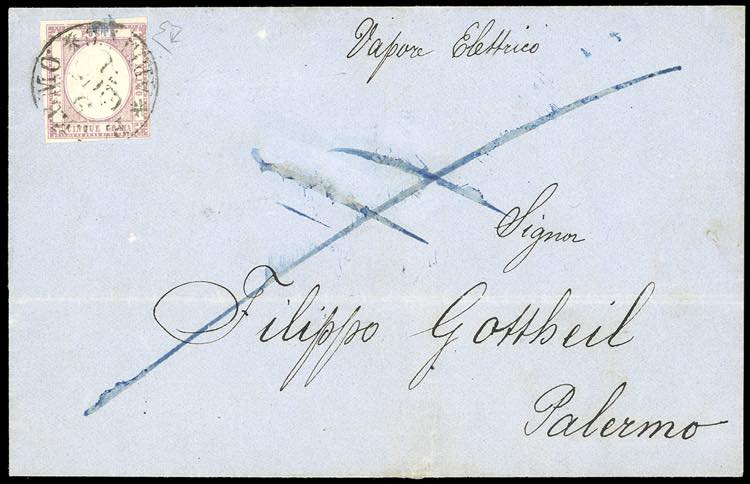 Vapore Elettrico
CINQUE GRANA
Signor
Filippo Gottheil
Palermo